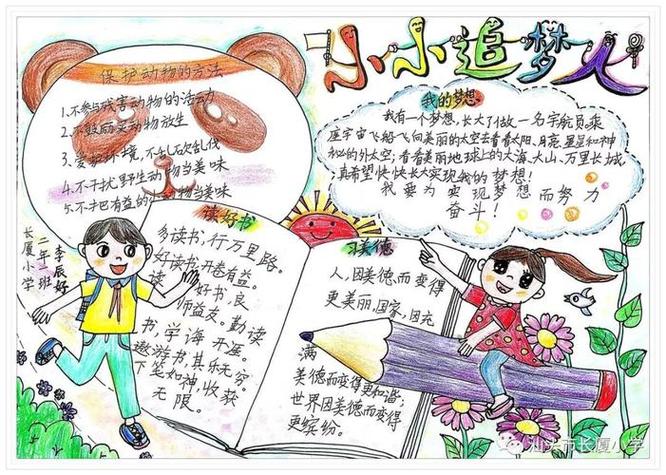 小小追梦人
保护动物的方法
1.不参与残害动物的活动
2.不鼓励买动物放生
3.爱护环境,不乱砍乱伐
4.不干扰野生动物当美味
5.不把有益的小动物当美味
我的梦想
我有一个梦想,长大了做一名宇航员。乘
座宇宙飞船飞向美丽的太空去看看太阳、月亮、星星和神
秘的外太空;看看美丽地球上的大海、大山、万里长城,
真希望快快长大实现我的梦想!
我要为实现梦想而努力
奋斗!
长厦小学
二年二班
李辰好
读好书
多读书,行万里路。
好读书,开卷有益。
读好书,良
师益友。勤读
书,学海无涯。
遨游书,其乐无穷。
下笔如神,收获
无限。
习美德
人,因美德,而变得
更美丽,国家,因充
满
美德而变得更和谐;
世界因美德而变得
更缤纷。
汕头市长厦小学